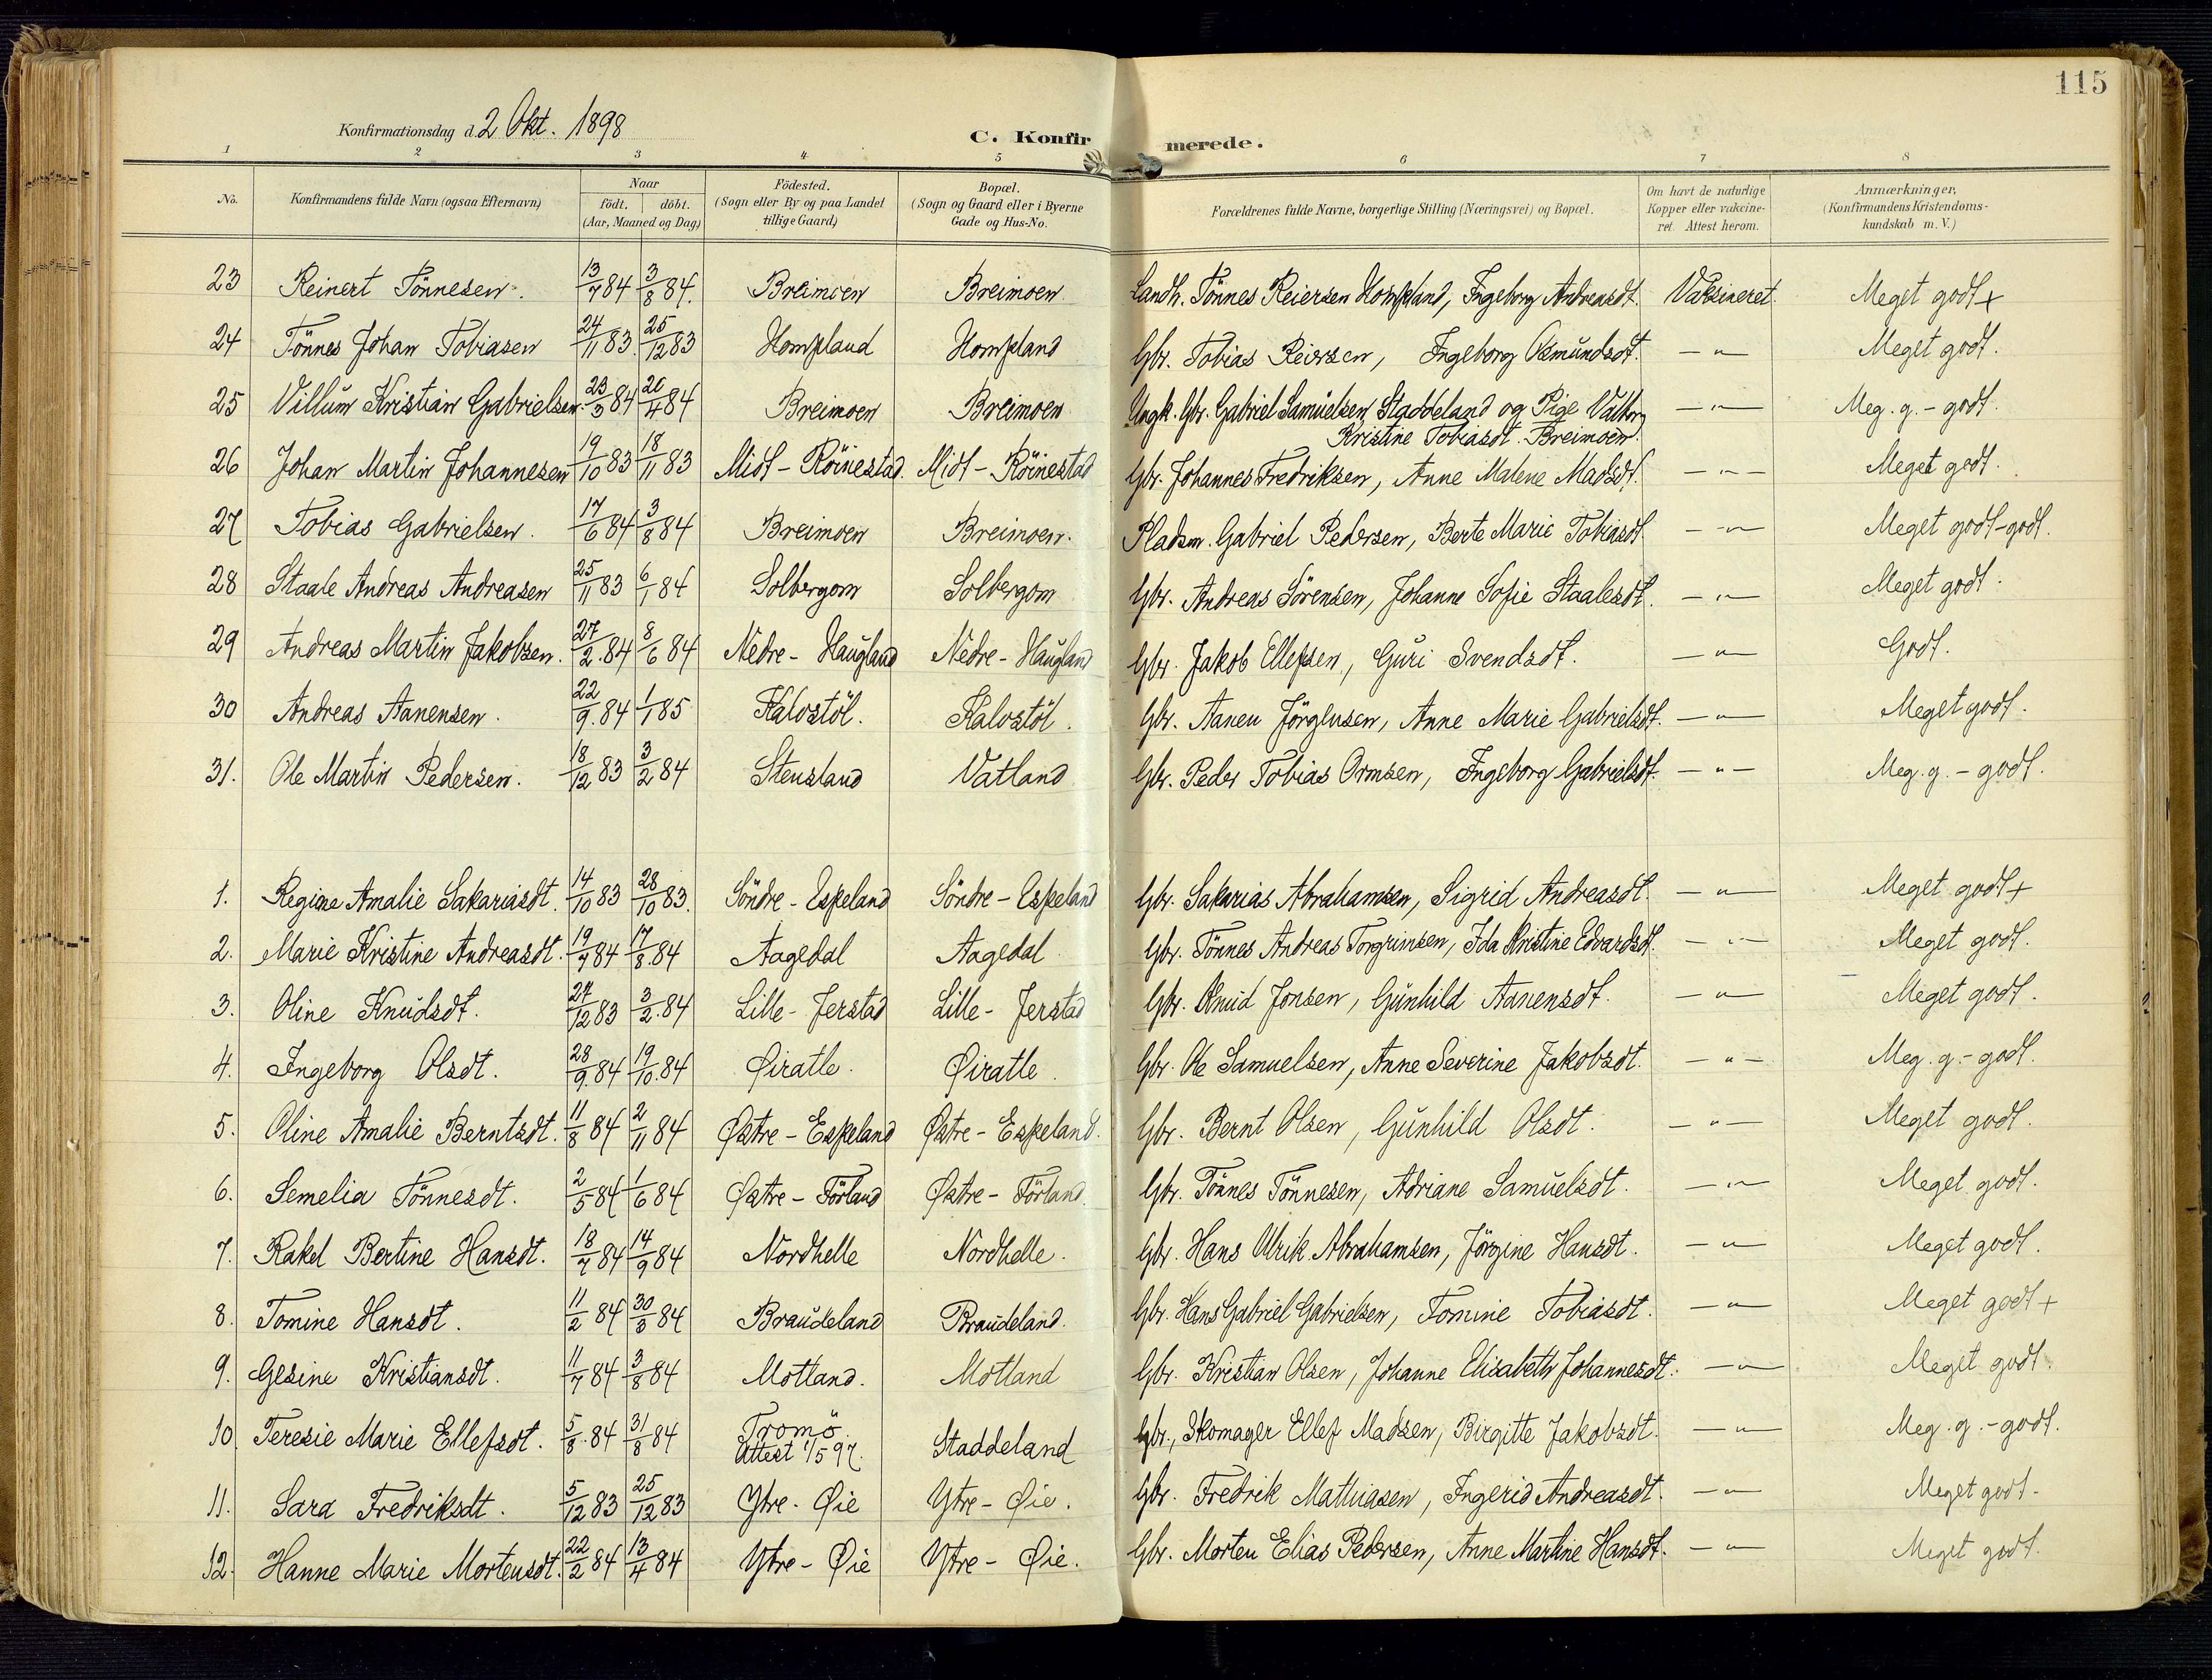 115
Konfirmationsdag d. 2 Okt. 1898
C. Konfirmerede.
1 2 3 4 5 6 7 8
No. Konfirmandens fulde Navn (ogsaa Efternavn) Naar födt. döbt. (Aar, Maaned og Dag) Födested. (Sogn eller By og paa Landet tillige Gaard) Bopæl. (Sogn og Gaard eller i Byerne Gade og Hus-No. Forældrenes fulde Navne, borgerlige Stilling (Næringsvei) og Bopæl. Om havt de naturlige Kopper eller vakcineret. Attest herom. Anmærkninger, (Konfirmandens Kristendomskundskab m. V.)
23 Reinert Tönnesen. 13/7 84 3/8 84. Breimoen Breimoen Landh. Tönnes Reiersen Hompland, Ingeborg Andreasdt. Vaksineret. Meget godt +
24 Tönnes Johan Tobiasen 24/11 83. 25/12 83 Hompland Hompland Gbr. Tobias Reiersen, Ingeborg Osmundsdt. — " — Meget godt.
25 Villum Kristian Gabrielsen. 23/3 84 20/4 84 Breimoen Breimoen Ungk. Gbr. Gabriel Samuelsen Staddeland og Pige Valborg — " — Meg. g. - godt.
Kristine Tobiasdt. Breimoen.
26 Johan Martin Johannesen 19/10 83 18/11 83 Midt-Röinestad. Midt-Röinestad Gbr. Johannes Fredriksen, Anne Malene Madsdt. — " — Meget godt.
27 Tobias Gabrielsen. 17/6 84 3/8 84 Breimoen Breimoen. Pladsm. Gabriel Pedersen, Berte Marie Tobiasdt. — " — Meget godt-godt.
28 Staale Andreas Andreasen 25/11 83 6/1 84 Solbergom Solbergom Gbr. Andreas Sörensen, Johanne Sofie Staalesdt. — " — Meget godt.
29 Andreas Martin Jakobsen. 27/2. 84 8/6 84 Nedre-Haugland Nedre-Haugland Gbr. Jakob Ellefsen, Guri Svendsdt. — " — Godt.
30 Andreas Aanensen. 22/9. 84 1/1 85 Kalvstöl. Kalvstöl. Gbr. Aanen Jörgensen, Anne Marie Gabrielsdt. — " — Meget godt.
31. Ole Martin Pedersen. 18/12 83 3/2 84 Stensland Vatland Gbr. Peder Tobias Ormsen, Ingeborg Gabrielsdt. — " — Meg. g. - godt.
1. Regine Amalie Sakariasdt. 14/10 83 28/10 83. Söndre-Espeland Söndre-Espeland Gbr. Sakarias Abrahamsen, Sigrid Andreasdt. — " — Meget godt +
2. Marie Kristine Andreasdt. 19/7 84 17/8. 84 Aagedal Aagedal Gbr. Tönnes Andreas Torgrimsen, Ida Kristine Edvardsdt. — " — Meget godt.
3. Oline Knudsdt. /12 83 3/2. 84 Lille-Jerstad Lille-Jerstad Gbr. Knud Jonsen, Gunhild Aanensdt. — " — Meget godt.
4. Ingeborg Olsdt. 28/9. 84 19/10. 84 Øiratle. Øiratle. Gbr. Ole Samuelsen, Anne Severine Jakobsdt. — " — Meg. g.- godt.
5. Oline Amalie Berntsdt. 11/8 84 2/11 84 Østre-Espeland Østre-Espeland. Gbr. Bernt Olsen, Gunhild Olsdt. — " — Meget godt.
6. Semelia Tönnesdt. 2/5 84 1/6 84 Østre-Förland Østre-Förland. Gbr. Tönnes Tönnesen, Adriane Samuelsdt. — " — Meget godt.
7. Rakel Bertine Hansdt. 18/7 84 14/9 84 Nordhelle Nordhelle. Gbr. Hans Ulrik Abrahamsen, Jörgine Hansdt. — " — Meget godt.
8. Tomine Hansdt. 11/2 84 30/3 84 Braudeland Braudeland. Gbr. Hans Gabriel Gabrielsen, Tomine Tobiasdt. — " — Meget godt +
9. Gesine Kristiansdt. 11/7 84 3/8 84 Motland. Motland Gbr. Kristian Olsen, Johanne Elisabeth Johannesdt. — " — Meget godt.
10. Teresie Marie Ellefsdt. 5/8. 84 31/8 84 Tromö. Staddeland Gbr., Skomager Ellef Madsen, Birgitte Jakobsdt. — " — Meg. g. - godt.
Attest 1/5 97.
11. Sara Fredriksdt. 5/12 83 25/12 83 Ytre-Øie Ytre-Øie. Gbr. Fredrik Mathiasen, Ingerid Andreasdt. — " — Meget godt.
12. Hanne Marie Mortensdt. 22/2 84 13/4 84 Ytre-Øie Ytre-Øie. Gbr. Morten Elias Pedersen, Anne Martine Hansdt. — " — Meget godt.